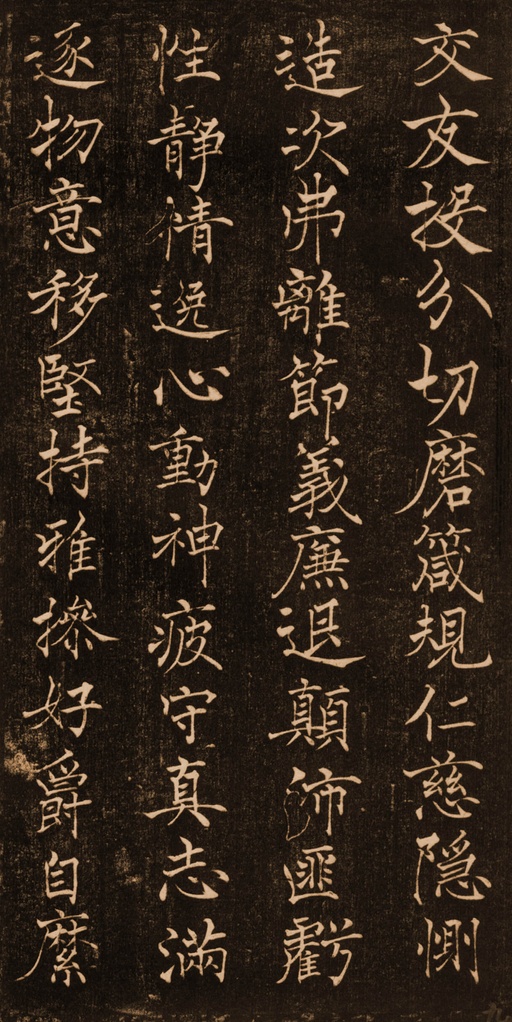 交友投分切磨箴規仁慈隱惻
造次弗離節義廉退顛沛匪虧
性靜情逸心動神疲守真志滿
逐物意移堅持雅操好爵自縻